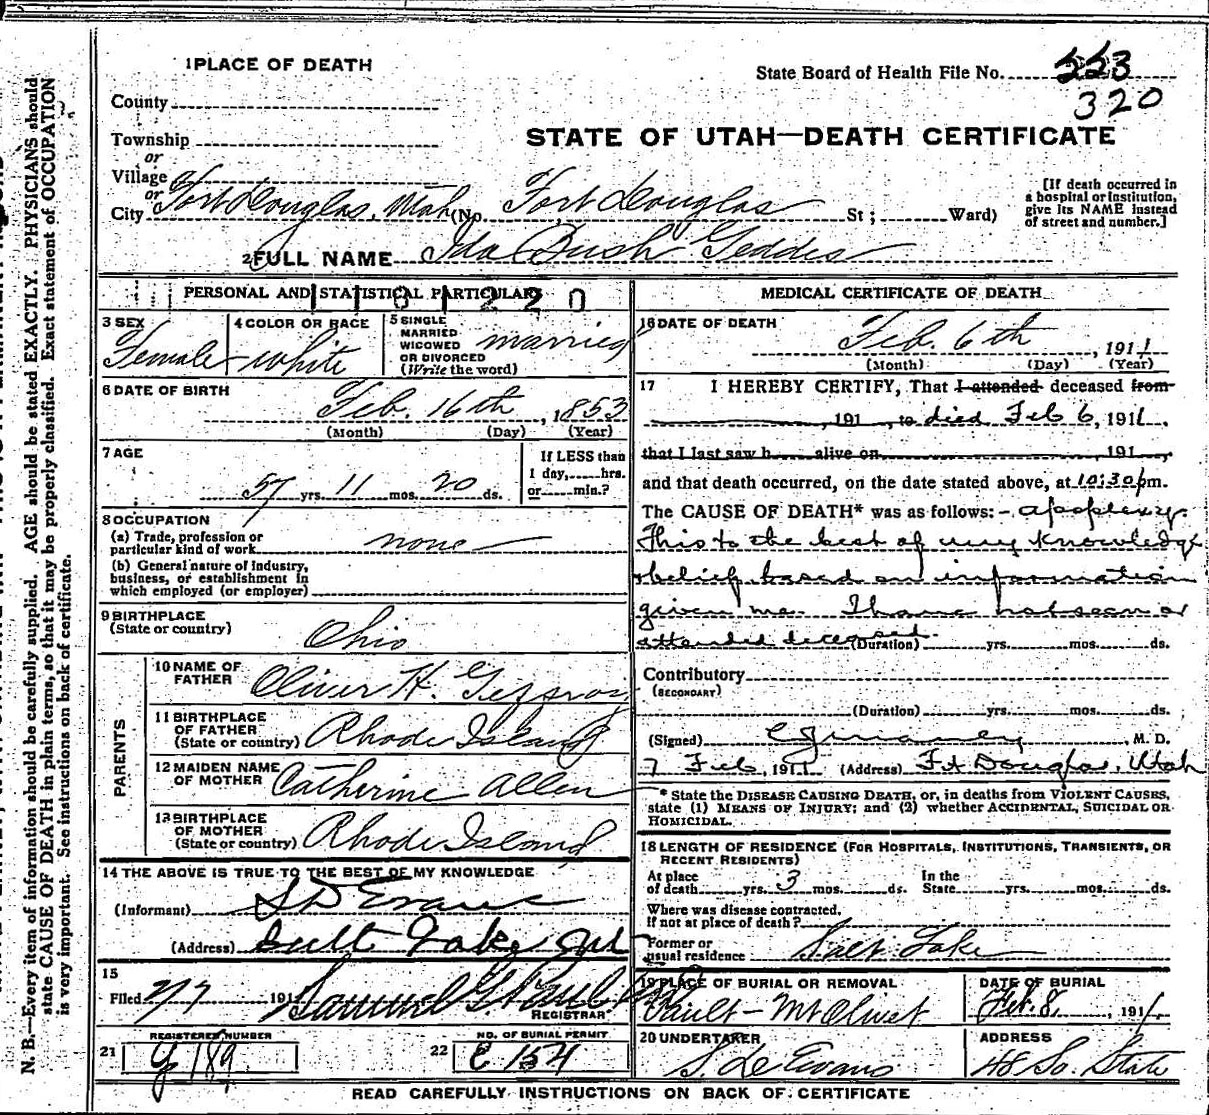 1 PLACE OF DEATH
State Board of Health File No. 553
320
County
Township
or
Village
or
City Fort Douglas, Utah (No. Fort Douglas St ; Ward)
STATE OF UTAH—DEATH CERTIFICATE
[If death occurred in a hospital or institution, give its NAME instead of street and number.]
2 FULL NAME Ida Bush Geddes
PERSONAL AND STATISTICAL PARTICULARS
3 SEX Female
4 COLOR OR RACE white
5 SINGLE MARRIED WIDOWED OR DIVORCED (Write the word) married
6 DATE OF BIRTH Feb. 16th, 1853
(Month) (Day) (Year)
7 AGE 57 yrs. 11 mos. 20 ds.
If LESS than 1 day, hrs. or min.?
8 OCCUPATION
(a) Trade, profession or particular kind of work none
(b) General nature of industry, business, or establishment in which employed (or employer)
9 BIRTHPLACE (State or country) Ohio
PARENTS
10 NAME OF FATHER Oliver H.
11 BIRTHPLACE OF FATHER (State or country) Rhode Island
12 MAIDEN NAME OF MOTHER Catherine Allen
13 BIRTHPLACE OF MOTHER (State or country) Rhode Island
14 THE ABOVE IS TRUE TO THE BEST OF MY KNOWLEDGE
(Informant) S D Evans
(Address) Salt Lake
15
Filed 2/7 191 Samuel G. Paul
REGISTRAR
21 REGISTERED NUMBER 189
22 NO. OF BURIAL PERMIT 154
MEDICAL CERTIFICATE OF DEATH
16 DATE OF DEATH Feb. 6th, 1911
(Month) (Day) (Year)
17 I HEREBY CERTIFY, That I attended deceased from
, 191 , to died Feb 6, 1911.
that I last saw h alive on , 191 ,
and that death occurred, on the date stated above, at 10:30 pm.
The CAUSE OF DEATH* was as follows:- apoplexy.
This to the best of my knowledge
& belief based on information
given me. I have not seen or
attended deceased.
(Duration) yrs. mos. ds.
Contributory
(SECONDARY)
(Duration) yrs. mos. ds.
(Signed) M. D.
7 Feb, 1911 (Address) Ft Douglas, Utah
* State the DISEASE CAUSING DEATH, or, in deaths from VIOLENT CAUSES, state (1) MEANS OF INJURY; and (2) whether ACCIDENTAL, SUICIDAL OR HOMICIDAL.
18 LENGTH OF RESIDENCE (FOR HOSPITALS, INSTITUTIONS, TRANSIENTS, OR RECENT RESIDENTS)
At place of death yrs. 3 mos. ds. In the State yrs. mos. ds.
Where was disease contracted, If not at place of death?
Former or usual residence Salt Lake
19 PLACE OF BURIAL OR REMOVAL Vault - Mt Olivet
DATE OF BURIAL Feb. 8, 191
20 UNDERTAKER S. D. Evans
ADDRESS 48 So. State
READ CAREFULLY INSTRUCTIONS ON BACK OF CERTIFICATE
N. B.—Every item of information should be carefully supplied. AGE should be stated EXACTLY. PHYSICIANS should
state CAUSE OF DEATH in plain terms, so that it may be properly classified. Exact statement of OCCUPATION
is very important. See instructions on back of certificate.